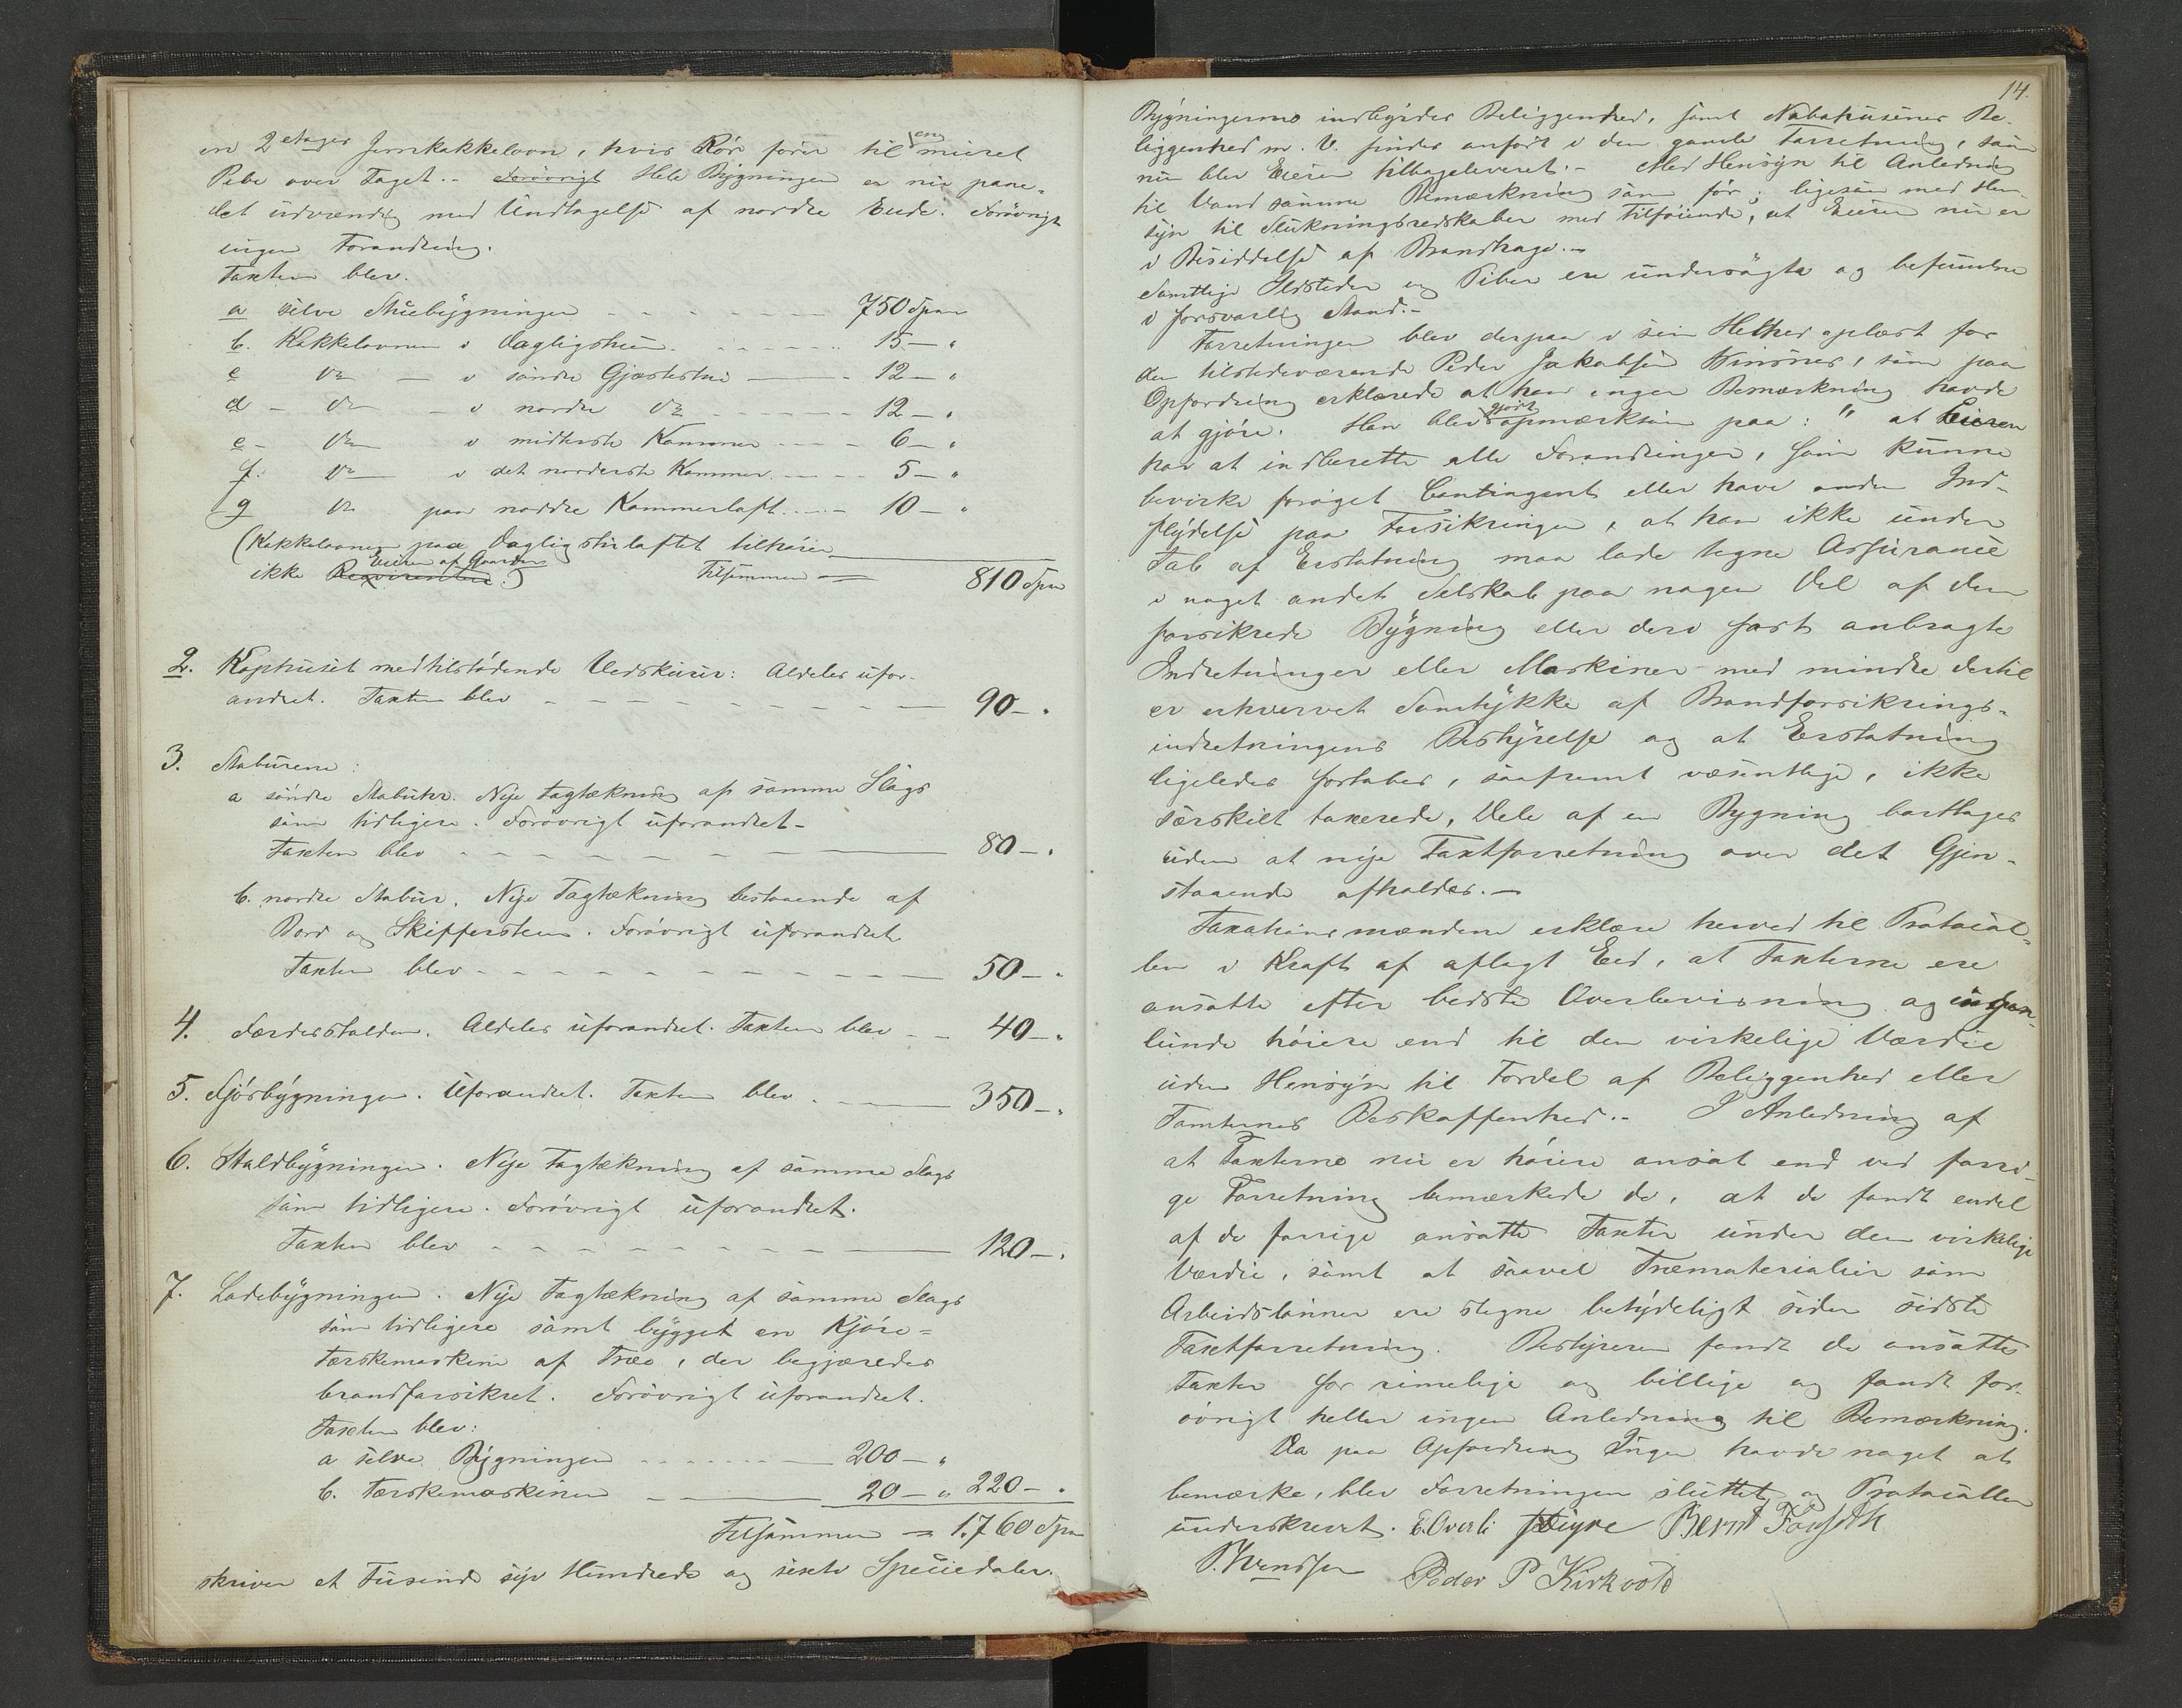 en 2 etages Jernkakkelovn, hvis Rör förer til en muret
Pibe over Taget. - Forövrigt Hele Bygningen er nu pane-
let udvendig med Undtagelse af nordre Ende. Forövrigt
ingen Forandring.
Taxten blev.
a selve Stuebygningen - - - 750 Spm
b. Kakkelovnen i Dagligstuen - - - 15 - "
c Do - i söndre Gjæstestue - - - 12 - "
d - Do - i nordre Do - - - 12 - "
e - Do i midterste Kammer - - - 6 - "
f. Do i det norderste Kammer - - - 5 - "
g Do paa nordre Kammerloft - - - 10 - "
(Kakkelovnen paa Dagligstueloftet tilhörer
ikke Reqvirenten Eieren af Gaarden.) Tilsammen = 810 Spm
2. Kophuset med tilstödende Vedskuur: Aldeles ufor-
andret. Taxten blev - - - 90 - "
3. Staburene:
a söndre Stabur. Nye Tagtækning af samme Slags
som tidligere. Forövrigt uforandret -
Taxten blev - - - 80 - "
b. nordre Stabur. Nye Tagtækning bestaaende af
Bord og Skiffersteen. Forövrigt uforandret
Taxten blev - - - 50 - "
4. Færdesstalden. Aldeles uforandret. Taxten blev - - 40 - "
5. Fjösbygningen. Uforandret. Taxten blev - - - 350 - "
6. Staldbygningen. Nye Tagtækning af samme Slags
som tidligere. Forövrigt uforandret.
Taxten blev - - - 120 - "
7. Ladebygningen. Nye Tagtækning af samme Slags
som tidligere samt bygget en Kjöre-
tærskemaskine af Træe, der begjæredes
brandforsikret. Forövrigt uforandret.
Taxten blev:
a selve Bygningen - - - 200 - "
b. Tærskemaskinen - - - 20 - " 220 - "
Tilsammen = 1.760 Spm
skriver et Tusinde syv Hundrede og sexti Speciedaler.
14.
Bygningernes indbyrdes Beliggenhed, samt Nabohusenes Be-
liggenhed m. V. findes anfört i den gamle Forretning, som
nu blev Eieren tilbageleveret. - Med Hensyn til Anledning
til Vand samme Bemærkning som för; ligesom med Hen-
syn til Slukningsredskaber med Tilföiende, at Eieren nu er
i Besiddelse af Brandhage. -
Samtlige Ildsteder og Piber ere undersögte og befundne
i forsvarlig Stand. -
Forretningen blev derpaa i sin Helhed oplæst for
den tilstedeværende Peder Jakobsen, som paa
Opfordring erklærede at han ingen Bemærkning havde
at gjöre. Han blev gjort opmærksom paa: " at Eieren
har at indberette alle Forandringer, som kunne
bevirke foröget Contingent eller have anden Ind-
flydelse paa Forsikringen, at han ikke under
Tab af Erstatning maa lade tegne Assurance
i noget andet Selskab paa nogen Del af den
forsikrede Bygning eller deri fast anbragte
Indretninger eller Maskiner med mindre dertil
er erhvervet Samtykke af Brandforsikrings-
indretningens Bestyrelse og at Erstatning
ligeledes fortabes, saafremt væsentlige, ikke
særskilt taxerede, Dele af en Bygning borttages
uden at nye Taxtforretning over det Gjen-
staaende afholdes. -
Taxationsmændene erklære herved til Protocol-
len i Kraft af aflagt Eed, at Taxterne ere
ansatte efter bedste Overbevisning og ingen-
lunde höiere end til den virkelige Værdie
uden Hensyn til Fordel af Beliggenhed eller
Tomternes Beskaffenhed. - I Anledning af
at Taxterne nu er höiere ansat end ved forri-
ge Forretning bemærkede de, at de fandt endel
af de forrige ansatte Taxter under den virkelige
Værdie, samt at saavel Træmaterialier som
Arbeidslönner ere stegne betydeligt siden sidste
Taxtforretning. Bestyreren fandt de ansatte
Taxter for rimelige og billige og fandt for-
övrigt heller ingen Anledning til Bemærkning.
Da paa Opfordring Ingen havde noget at
bemærke, blev Forretningen sluttet og Protocollen
underskrevet. E. Overli Bernt Fougsth
P. Svendsen Peder P Kirkvold